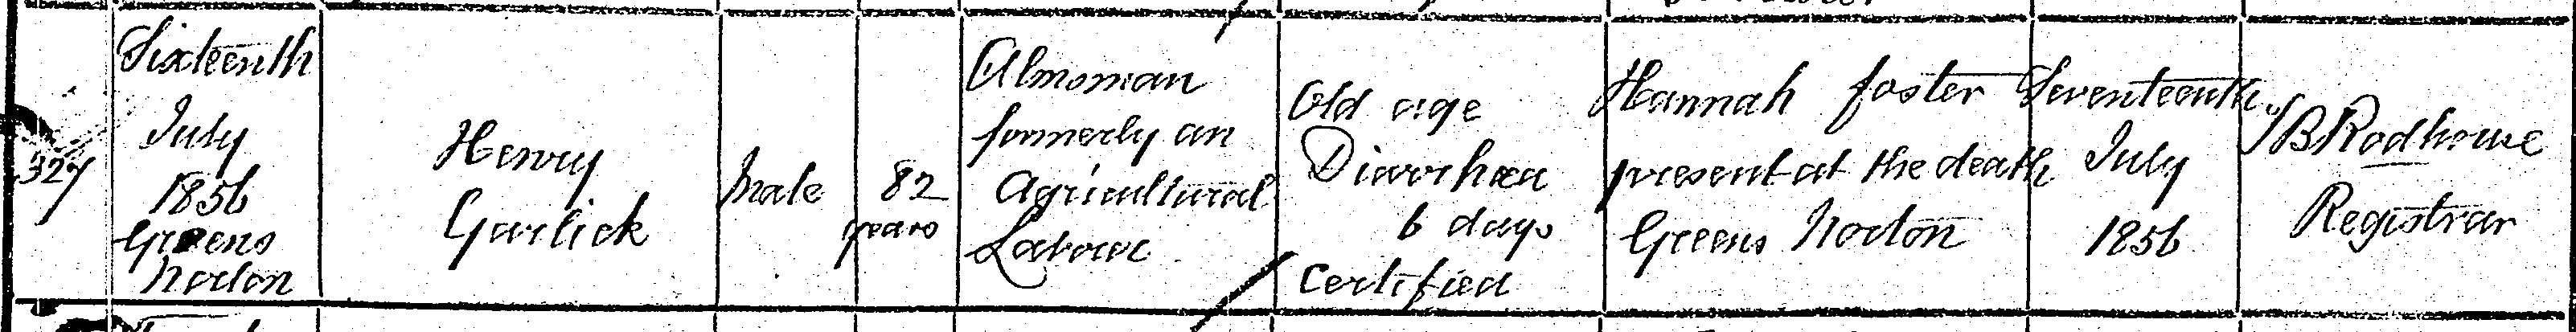 327
Sixteenth
July
1856
Greens
Norton
Henry
Garlick
Male
82
years
Almsman
formerly an
Agricultural
Labourer
Old age
Diarrhæa
6 days
Certified
Hannah foster
present at the death
Greens Norton
Seventeenth
July
1856
Rodhouse
Registrar